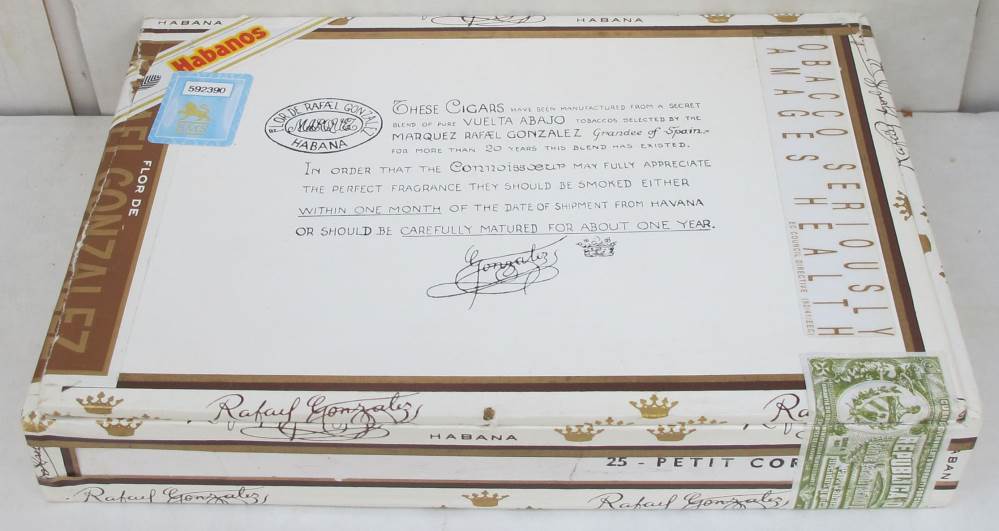 HABANA
HABANA
Habanos
592390
FLOR DE RAFAEL GONZALEZ
MARQUEZ
HABANA
THESE CIGARS HAVE BEEN MANUFACTURED FROM A SECRET
BLEND OF PURE VUELTA ABAJO TOBACCOS SELECTED BY THE
MARQUEZ RAFAEL GONZALEZ Grandee of Spain.
FOR MORE THAN 20 YEARS THIS BLEND HAS EXISTED.
IN ORDER THAT THE Connoisseur MAY FULLY APPRECIATE
THE PERFECT FRAGRANCE THEY SHOULD BE SMOKED EITHER
WITHIN ONE MONTH OF THE DATE OF SHIPMENT FROM HAVANA
OR SHOULD BE CAREFULLY MATURED FOR ABOUT ONE YEAR.
Gonzalez
OBACCO SERIOUSLY
AMAGES HEALTH
EC COUNCIL DIRECTIVE
FLOR DE
EL GONZALEZ
Rafael Gonzalez
Ra
HABANA
25 - PETIT COR
REPUBLICA
HABAN
Rafael Gonzalez
Rafael Gonzalez